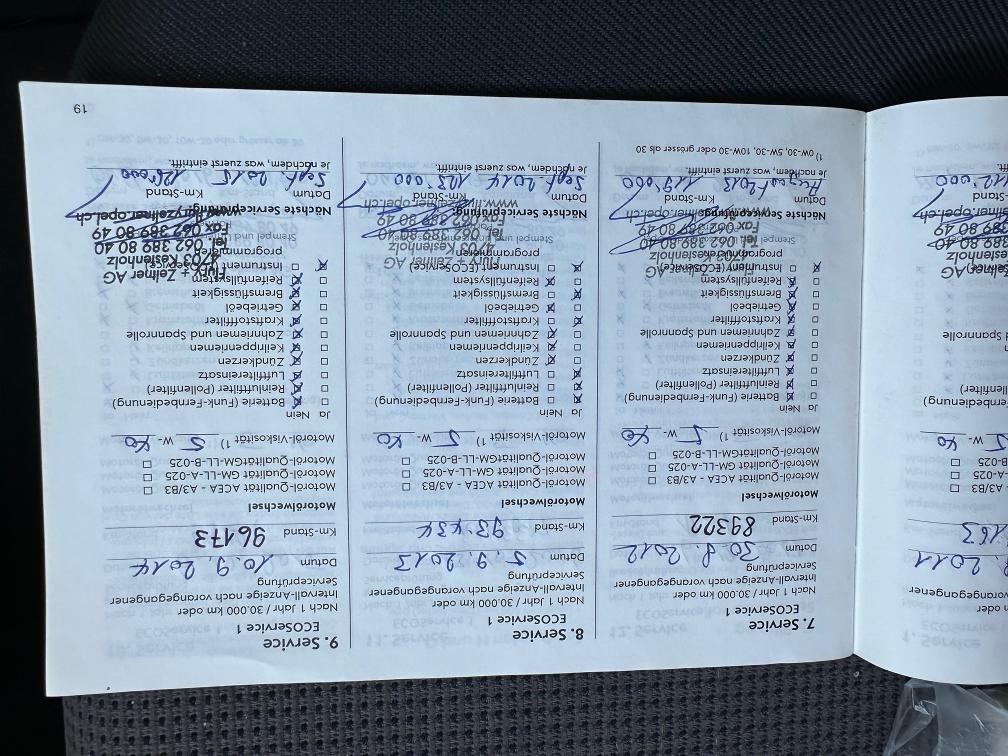 7. Service
ECOService 1
Nach 1 Jahr / 30.000 km oder
Intervall-Anzeige nach vorangegangener
Serviceprüfung
Datum 30.8.2012
Km-Stand 89322
Motorölwechsel
Motoröl-Qualität ACEA - A3/B3 □
Motoröl-Qualität GM-LL-A-025 □
Motoröl-Qualität GM-LL-B-025 □
Motoröl-Viskosität 1) 5 W- 40
Ja Nein
Batterie (Funk-Fernbedienung)
Reinluftfilter (Pollenfilter)
Luftfiltereinsatz
Zündkerzen
Keilrippenriemen
Zahnriemen und Spannrolle
Kraftstofffilter
Getriebeöl
Bremsflüssigkeit
Reifenfüllservice
Instrument (ECOService)
programmieren
4703 Kestenholz
Tel. 062 389 80 40
Fax 062 389 80 49
Nächste Serviceprüfung:
Datum Km-Stand
August 2013 119'000
Je nachdem, was zuerst eintrifft.
1) 0W-30, 5W-30, 10W-30 oder grösser als 30
8. Service
ECOService 1
Nach 1 Jahr / 30.000 km oder
Intervall-Anzeige nach vorangegangener
Serviceprüfung
Datum 5.9.2013
Km-Stand 93'434
Motorölwechsel
Motoröl-Qualität ACEA - A3/B3 □
Motoröl-Qualität GM-LL-A-025 □
Motoröl-Qualität GM-LL-B-025 □
Motoröl-Viskosität 1) 5 W- 40
Ja Nein
Batterie (Funk-Fernbedienung)
Reinluftfilter (Pollenfilter)
Luftfiltereinsatz
Zündkerzen
Keilrippenriemen
Zahnriemen und Spannrolle
Kraftstofffilter
Getriebeöl
Bremsflüssigkeit
Reifenfüllservice
Instrument (ECOService)
programmieren
Flury + Zellner AG
4703 Kestenholz
Tel. 062 389 80 40
Fax 062 389 80 49
Nächste Serviceprüfung:
Datum Km-Stand
Sept. 2014 123'000
Je nachdem, was zuerst eintrifft.
9. Service
ECOService 1
Nach 1 Jahr / 30.000 km oder
Intervall-Anzeige nach vorangegangener
Serviceprüfung
Datum 10.9.2014
Km-Stand 96173
Motorölwechsel
Motoröl-Qualität ACEA - A3/B3 □
Motoröl-Qualität GM-LL-A-025 □
Motoröl-Qualität GM-LL-B-025 □
Motoröl-Viskosität 1) 5 W- 40
Ja Nein
Batterie (Funk-Fernbedienung)
Reinluftfilter (Pollenfilter)
Luftfiltereinsatz
Zündkerzen
Keilrippenriemen
Zahnriemen und Spannrolle
Kraftstofffilter
Getriebeöl
Bremsflüssigkeit
Reifenfüllservice
Instrument (ECOService)
programmieren
Flury + Zellner AG
4703 Kestenholz
Tel. 062 389 80 40
Fax 062 389 80 49
Nächste Serviceprüfung:
Datum Km-Stand
Sept. 2015 126'000
Je nachdem, was zuerst eintrifft.
19